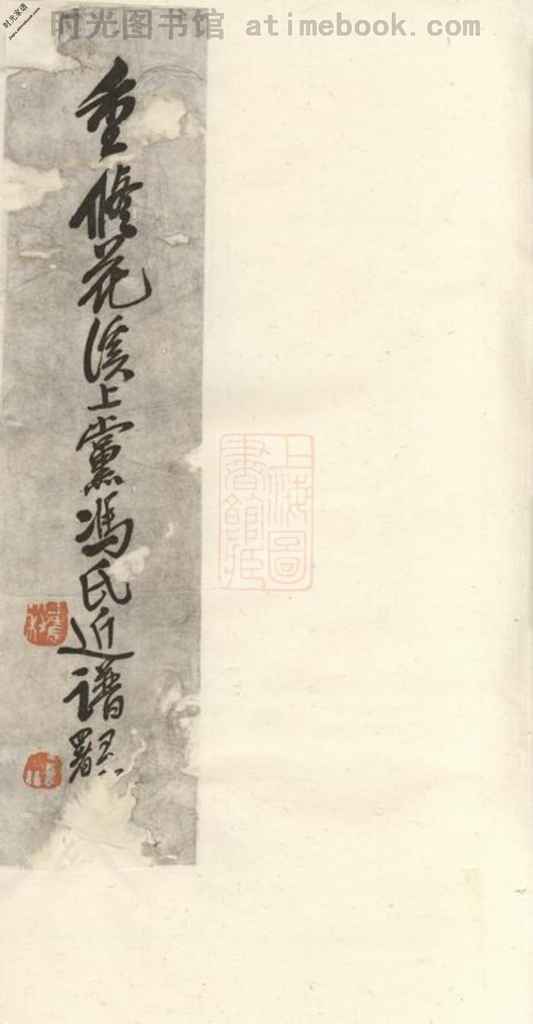 时光图书馆 atimebook.com
时光家谱
重修花溪上黨馮氏近譜
上海圖書館藏